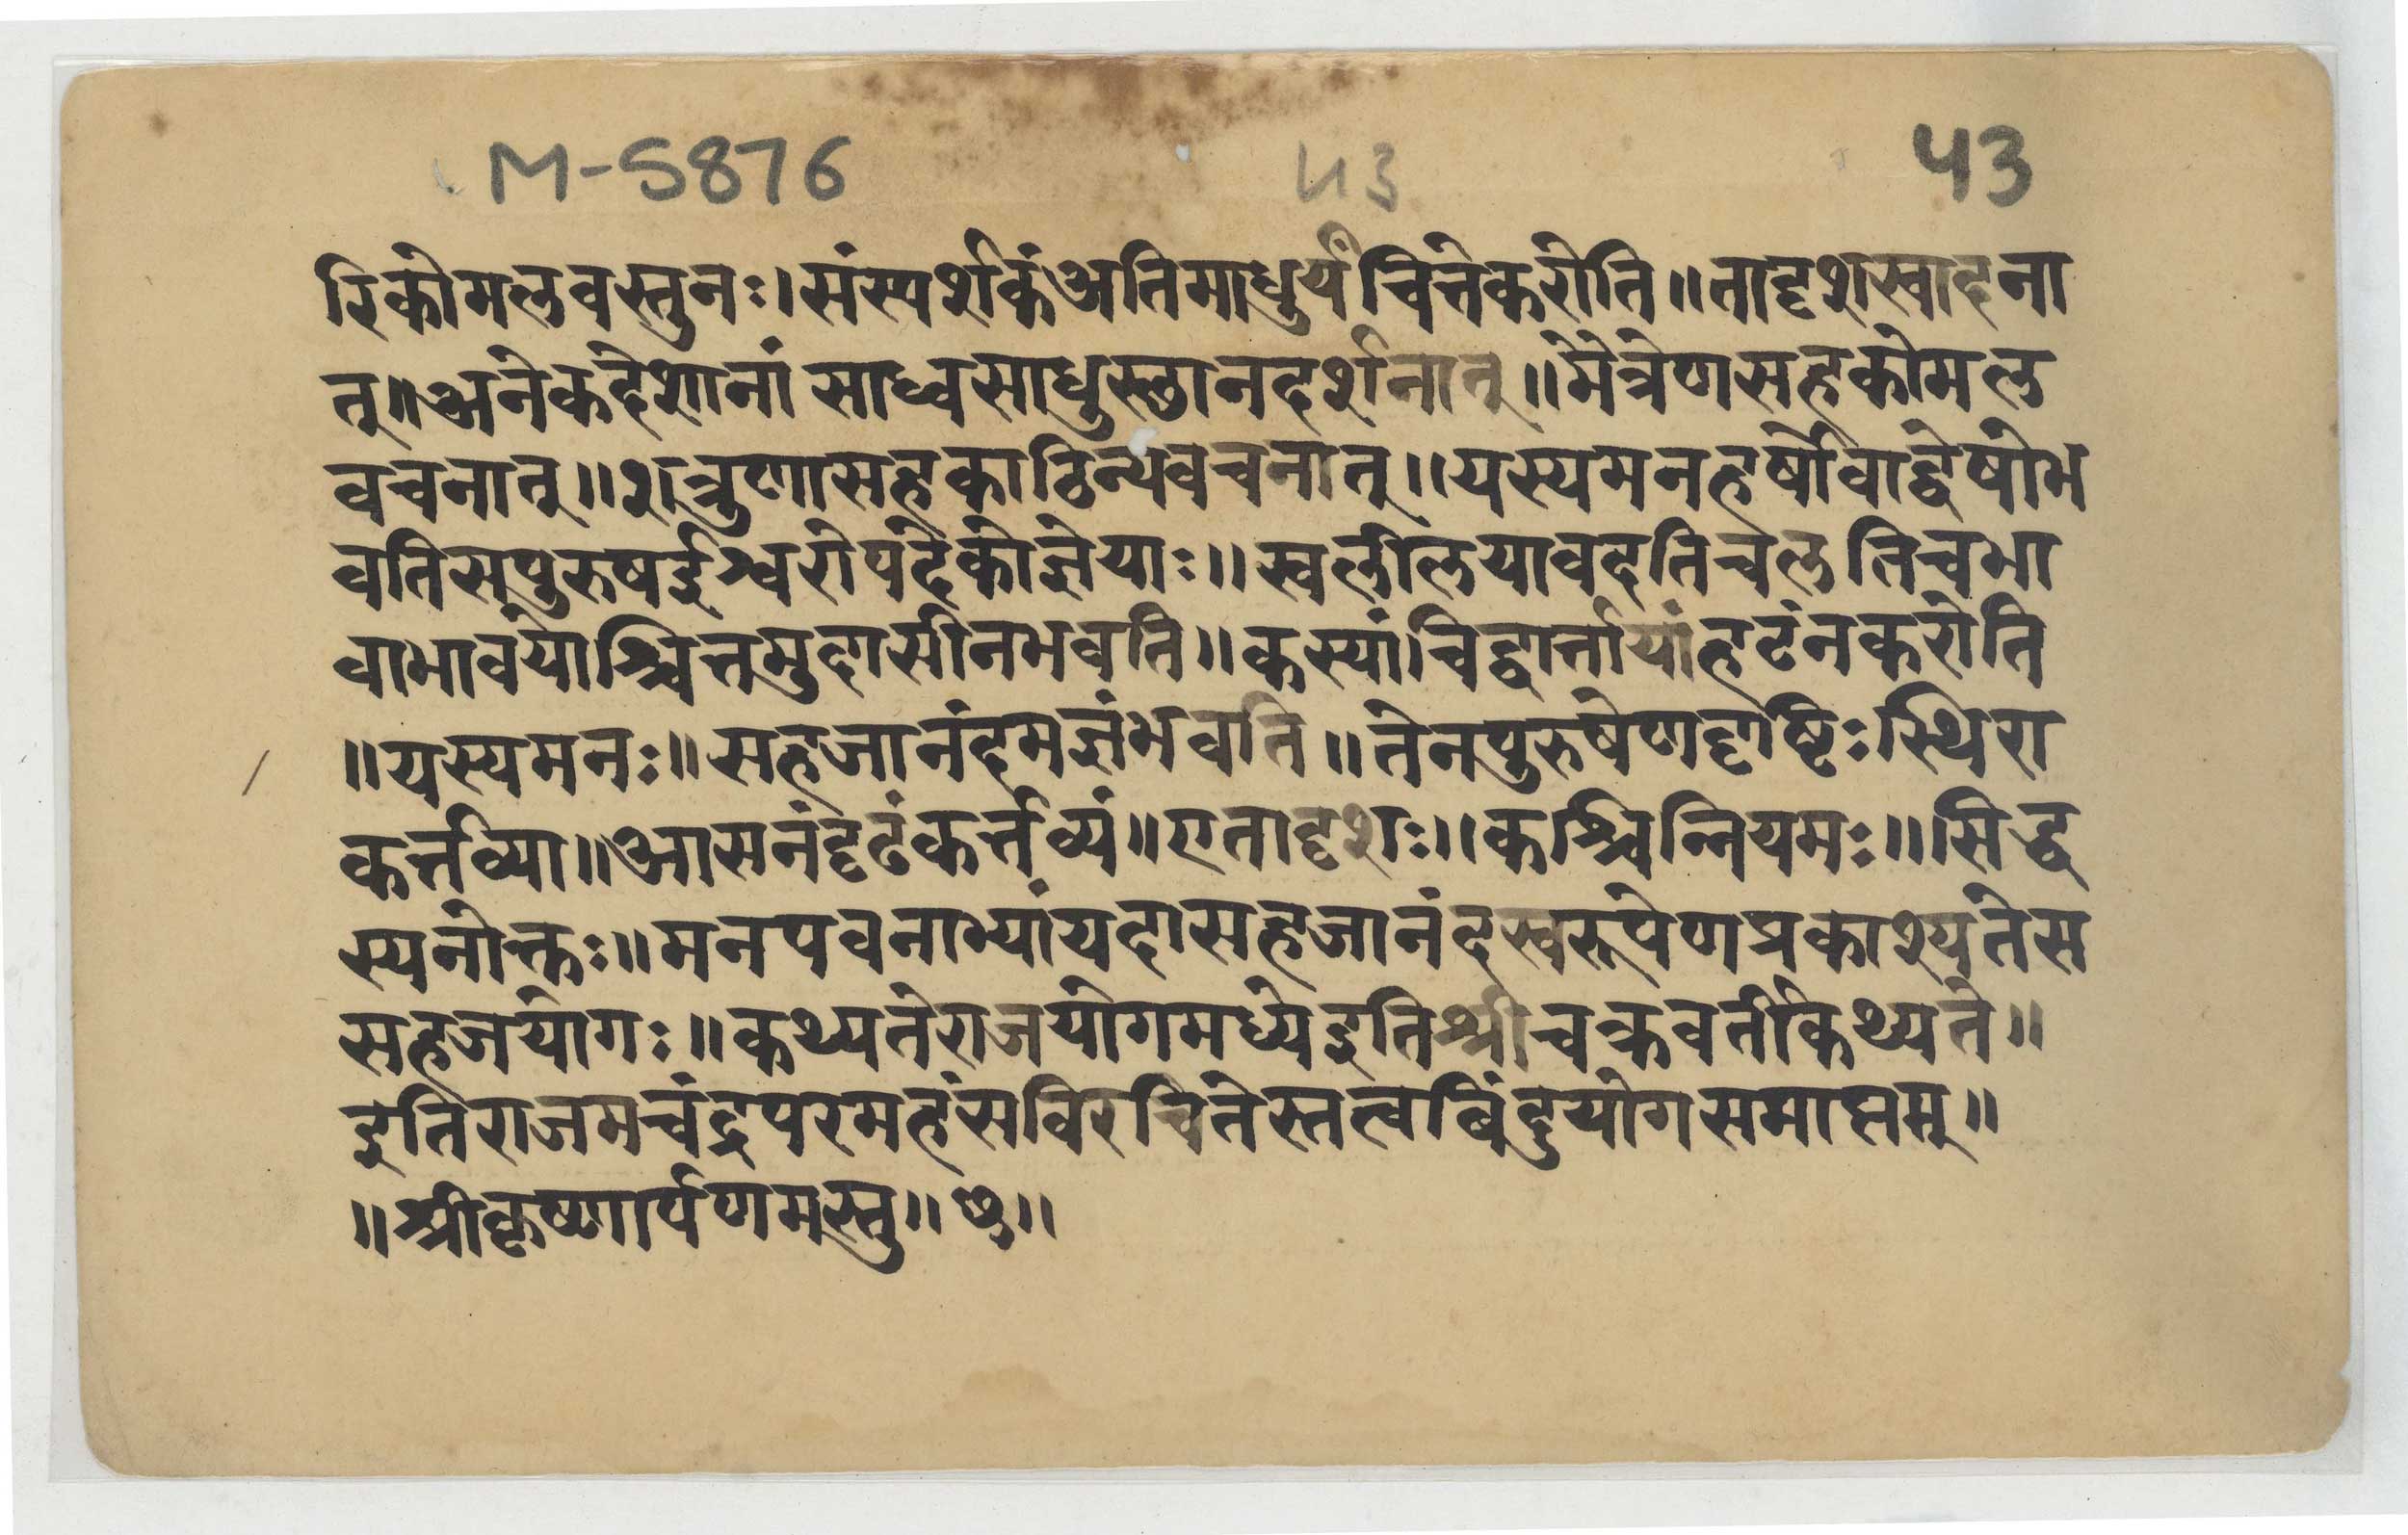 M-5876 43 ५3
रिकोमलवस्तुनः।संस्पर्शकंअतिमाधुर्यंचित्तेकरोति॥तादृशस्वादना
त्॥अनेकदेशानां साध्वसाधुस्छानदर्शनात्॥मैत्रेणसहकोमल
वचनात्॥शत्रुणासहकाठिन्यवचनात्॥यस्यमनहर्षोवाद्वेषोभ
वतिसपुरुषईश्वरोपदेकोज्ञेयाः॥स्वलीलयावदतिचलतिचभा
वाभावयोश्चित्तमुदासीनभवति॥कस्यांचिद्वार्त्तायांहटंनकरोति
॥यस्यमनः॥सहजानंदमज्ञंभवति॥तेनपुरुषेणदृष्टिःस्थिरा
कर्त्तव्या॥आसनंदृढंकर्त्तव्यं॥एतादृशः॥कश्चिन्नियमः॥सिद्ध
स्यनोक्तः॥मनपवनाभ्यांयदासहजानंदस्वरूपेणप्रकाश्यतेस
सहजयोगः॥कथ्यतेराजयोगमध्येइतिश्रीचक्रवर्तीकथ्यते॥
इतिराजमचंद्रपरमहंसविरचितेस्तत्वबिंदुयोगसमाप्तम्॥
॥श्रीकृष्णार्पणमस्तु॥छ॥